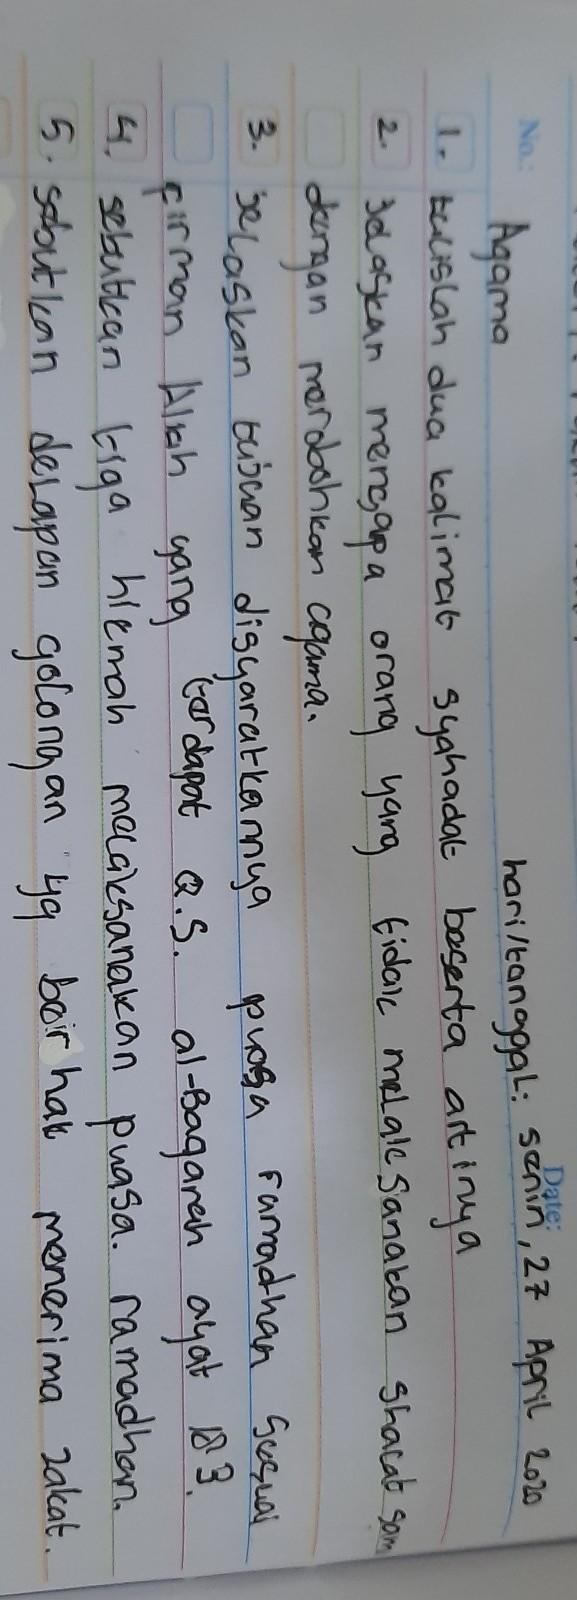 No.:
Date:
Agama hari/tanggal: senin, 27 April 2020
1. tulislah dua kalimat syahadat beserta artinya
2. Jelaskan mengapa orang yang tidak melaksanakan shalat sama
dengan merobohkan agama.
3. jelaskan tujuan disyaratkannya puasa ramadhan sesuai
firman Allah yang terdapat Q.S. al-Baqarah ayat 183.
4. sebutkan tiga hikmah melaksanakan puasa. ramadhan.
5. sebutkan delapan golongan yg berhak menerima zakat.